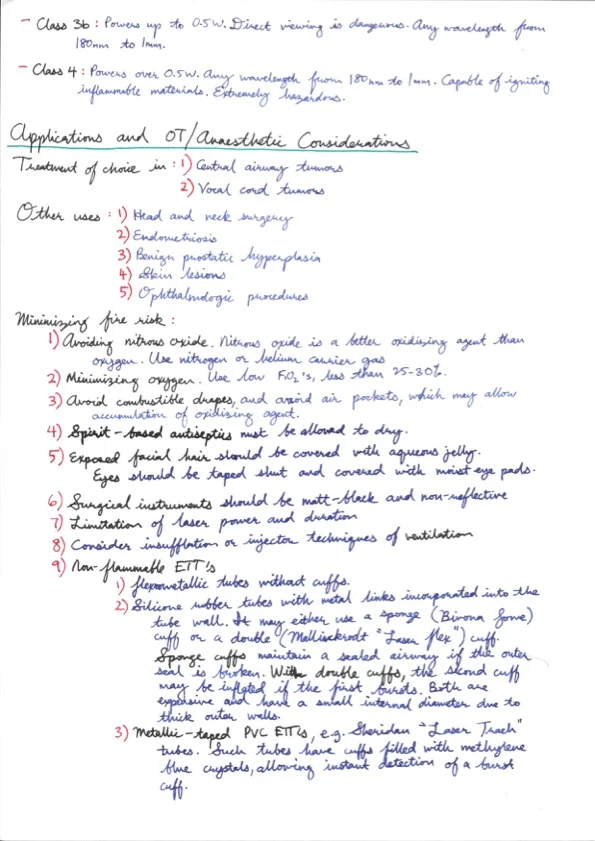 - Class 3b : Powers up to 0.5W. Direct viewing is dangerous. Any wavelength from
180nm to 1mm.
- Class 4 : Powers over 0.5W. Any wavelength from 180nm to 1mm. Capable of igniting
inflammable materials. Extremely hazardous.
Applications and OT/Anaesthetic Considerations
Treatment of choice in : 1) Central airway tumors
2) Vocal cord tumors
Other uses : 1) Head and neck surgery
2) Endometriosis
3) Benign prostatic hyperplasia
4) Skin lesions
5) Ophthalmologic procedures
Minimizing fire risk :
1) Avoiding nitrous oxide. Nitrous oxide is a better oxidising agent than
oxygen. Use nitrogen or helium carrier gas
2) Minimizing oxygen. Use low FiO2's, less than 25-30%.
3) Avoid combustible drapes, and avoid air pockets, which may allow
accumulation of oxidising agent.
4) Spirit-based antiseptics must be allowed to dry.
5) Exposed facial hair should be covered with aqueous jelly.
Eyes should be taped shut and covered with moist eye pads.
6) Surgical instruments should be matt-black and non-reflective
7) Limitation of laser power and duration
8) Consider insufflation or injector techniques of ventilation
9) Non-flammable ETT's
1) flexometallic tubes without cuffs.
2) Silicone rubber tubes with metal links incorporated into the
tube wall. It may either use a sponge (Bivona fome)
cuff or a double (Mallinckrodt "Laser flex") cuff.
Sponge cuffs maintain a sealed airway if the outer
seal is broken. With double cuffs, the second cuff
may be inflated if the first bursts. Both are
expensive and have a small internal diameter due to
thick outer walls.
3) Metallic-taped PVC ETT's, e.g. Sheridan "Laser Trach"
tubes. Such tubes have cuffs filled with methylene
blue crystals, allowing instant detection of a burst
cuff.